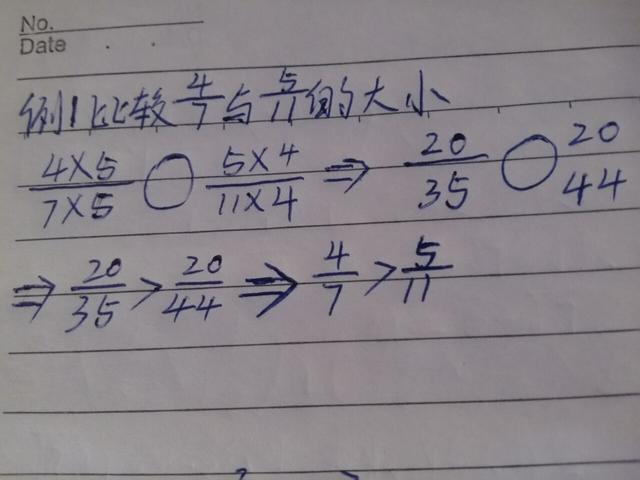 No.
Date
例1 比较 4/7 与 5/11 的大小
4×5/7×5 ○ 5×4/11×4 ⇒ 20/35 ○ 20/44
⇒ 20/35 > 20/44 ⇒ 4/7 > 5/11